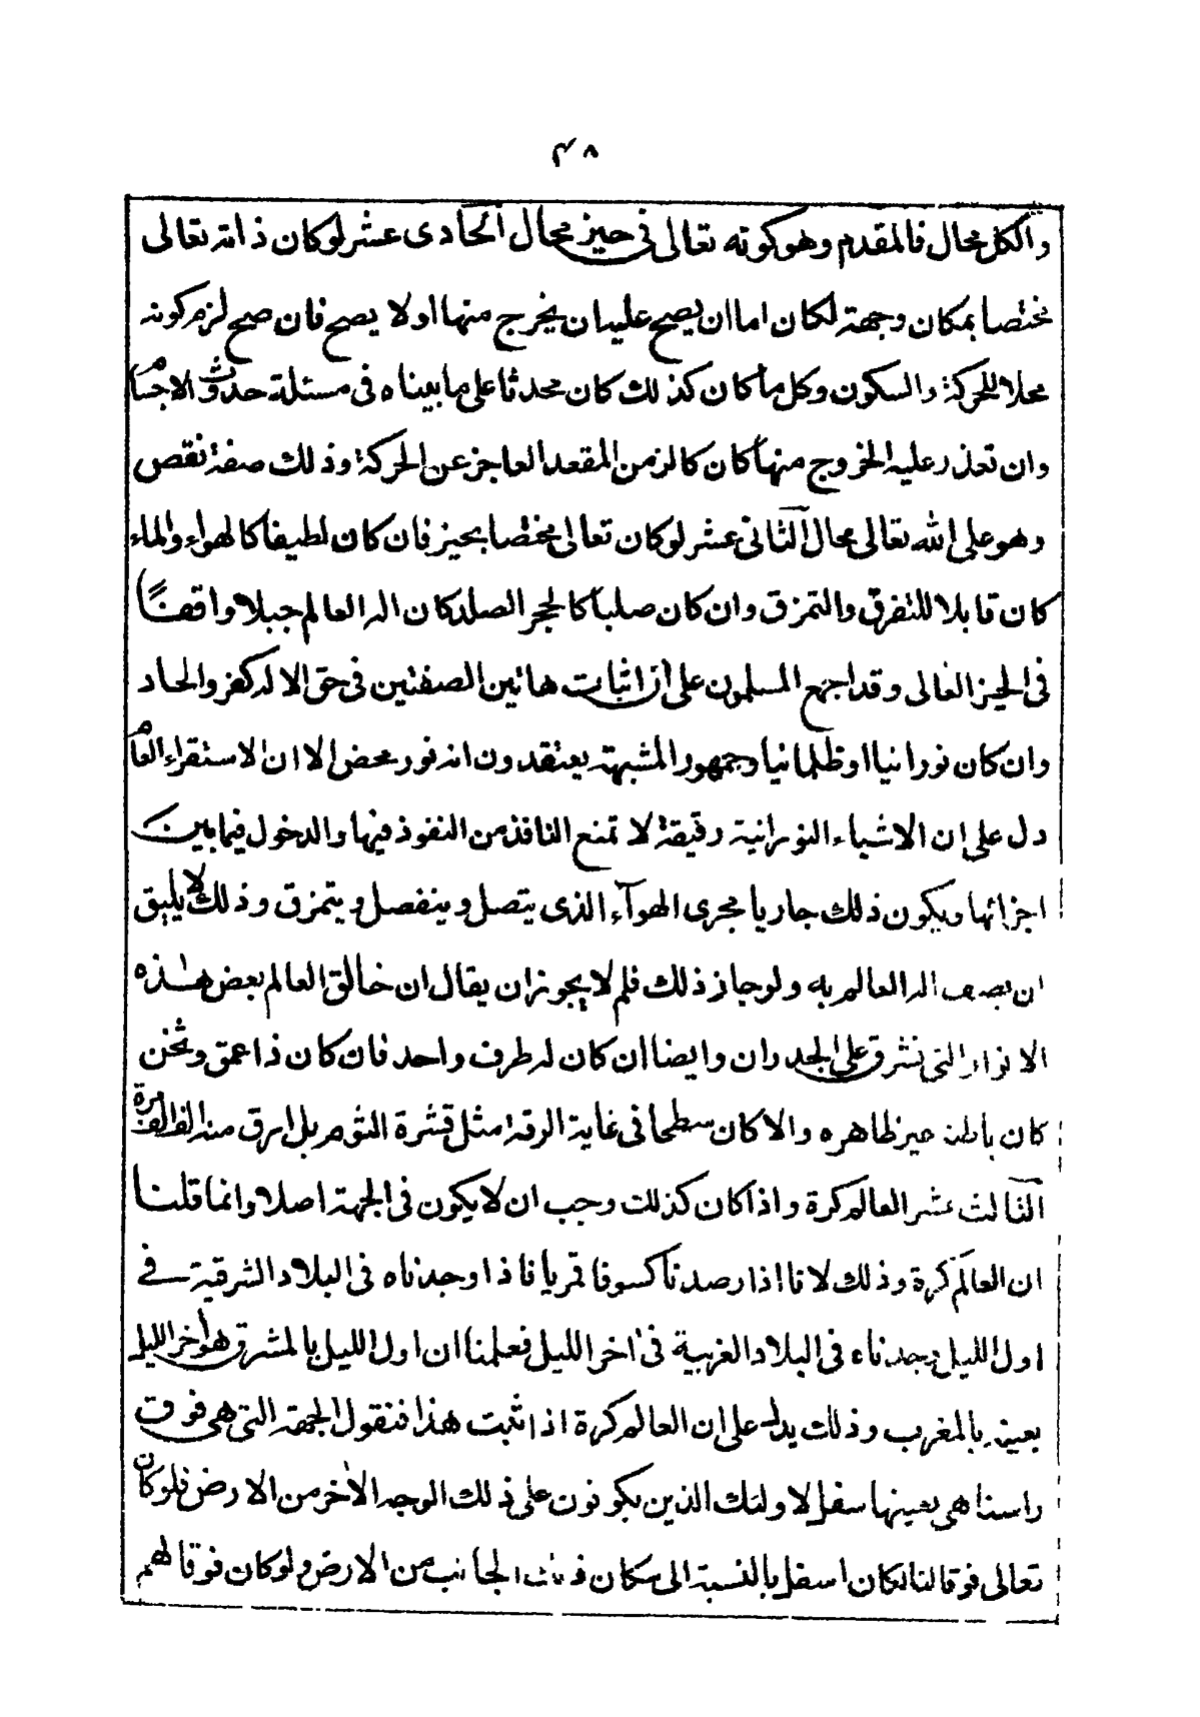 ۴۸
والكل محال فالمقدم وهو كونه تعالى فى حيز محال الحادى عشر لو كان ذاته تعالى
مختصا بمكان وجهة لكان اما ان يصح عليه ان يخرج منها او لا يصح فان صح لزم كونه
محلا للحركة والسكون وكل ما كان كذلك كان محدثا على ما بيناه فى مسئلة حدوث الاجسام
وان تعذر عليه الخروج منها كان كالزمن المقعد العاجز عن الحركة وذلك صفة نقص
وهو على الله تعالى محال الثانى عشر لو كان تعالى مختصا بحيز فان كان لطيفا كالهواء والماء
كان قابلا للتفرق والتمزق وان كان صلبا كالحجر الصلد كان اله العالم جبلا واقفا
فى الحيز العالى وقد اجمع المسلمون على ان اثبات هاتين الصفتين فى حق الاله كفر والحاد
وان كان نورانيا او ظلمانيا وجمهور المشبهة يعتقدون انه نور محض الا ان الاستقراء العام
دل على ان الاشياء النورانية رقيقة لا تمنع النافذ من النفوذ فيها والدخول فيما بين
اجزائها ويكون ذلك جاريا مجرى الهوآء الذى يتصل وينفصل ويتمزق وذلك لا يليق
ان يصف اله العالم به ولو جاز ذلك فلم لا يجوز ان يقال ان خالق العالم بعض هذه
الانوار التى تشرق على الجدران وايضا ان كان له طرف واحد فان كان ذا عمق وثخن
كان باطنه غير ظاهره والا كان سطحا فى غاية الرقة مثل قشرة الثوم بل ارق منه الف الف مرة
الثالث عشر العالم كرة واذا كان كذلك وجب ان لا يكون فى الجهة اصلا وانما قلنا
ان العالم كرة وذلك لانا اذا رصدنا كسوفا قمريا فاذا وجدناه فى البلاد الشرقية فى
اول الليل وجدناه فى البلاد الغربية فى اخر الليل فعلمنا ان اول الليل بالمشرق هو اخر الليل
بعينه بالمغرب وذلك يدل على ان العالم كرة اذا ثبت هذا فنقول الجهة التى هى فوق
راسنا هى بعينها سفل لاولئك الذين يكونون على ذلك الوجه الاخر من الارض فلو كان
تعالى فوقا لنا لكان اسفل بالنسبة الى سكان ذلك الجانب من الارض ولو كان فوقا لهم